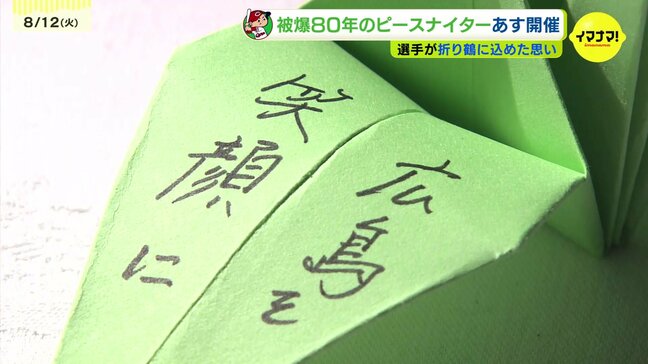 8/12(火)
被爆80年のピースナイターあす開催
選手が折り鶴に込めた思い
イマナマ!
広島を
笑顔に